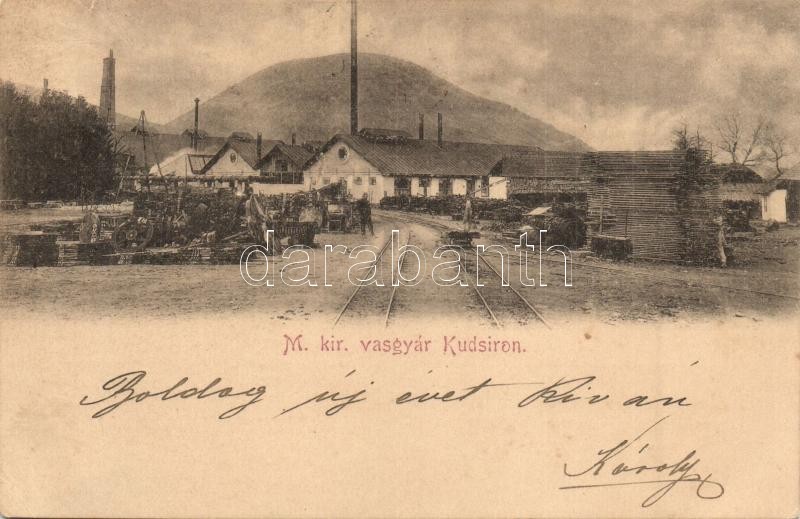 darabanth
M. kir. vasgyár Kudsiron.
Boldog új évet kiván
Károly